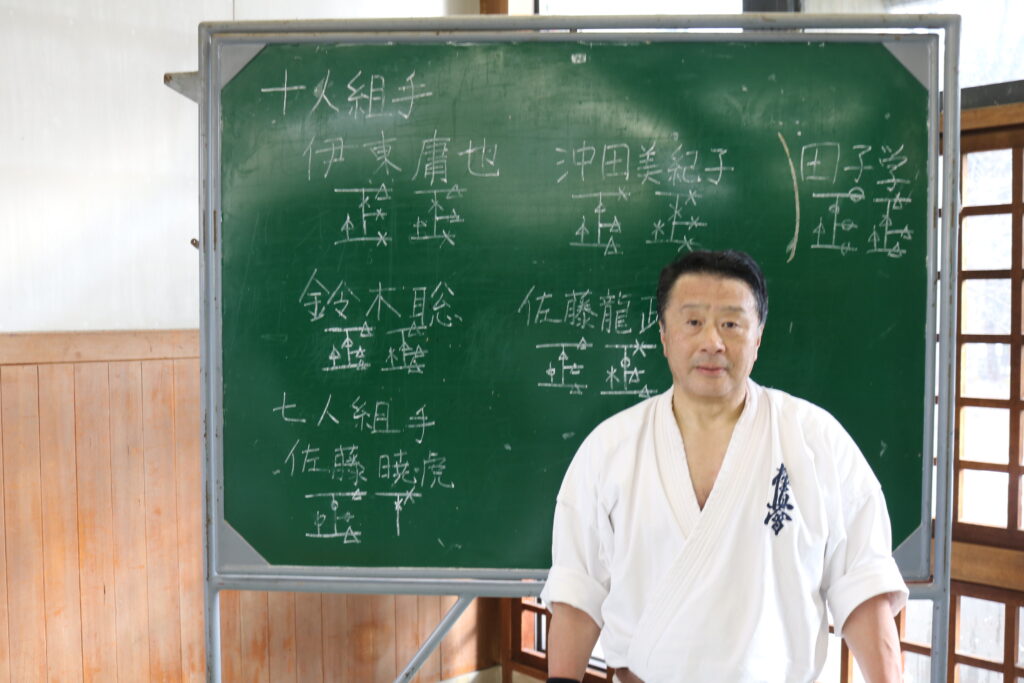 十人組手
伊東庸也 沖田美紀子 田子学
正 正 正 正 正 正
鈴木聡 佐藤龍
正 正 正 正
七人組手
佐藤暁虎
正 丅
極真会